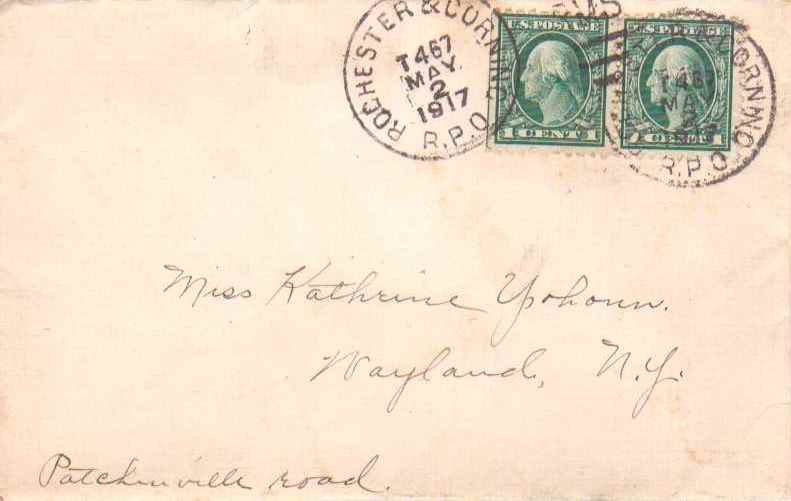 ROCHESTER & CORNING
T 467
MAY
2
1917
R.P.O.
RMS
U.S. POSTAGE
1 CENT 1
U.S. POSTAGE
1 CENT 1
CORNING
T 467
MAY
2
1917
R.P.O.
Miss Kathrine Yohonn.
Wayland, N.Y.
Patchinville road.